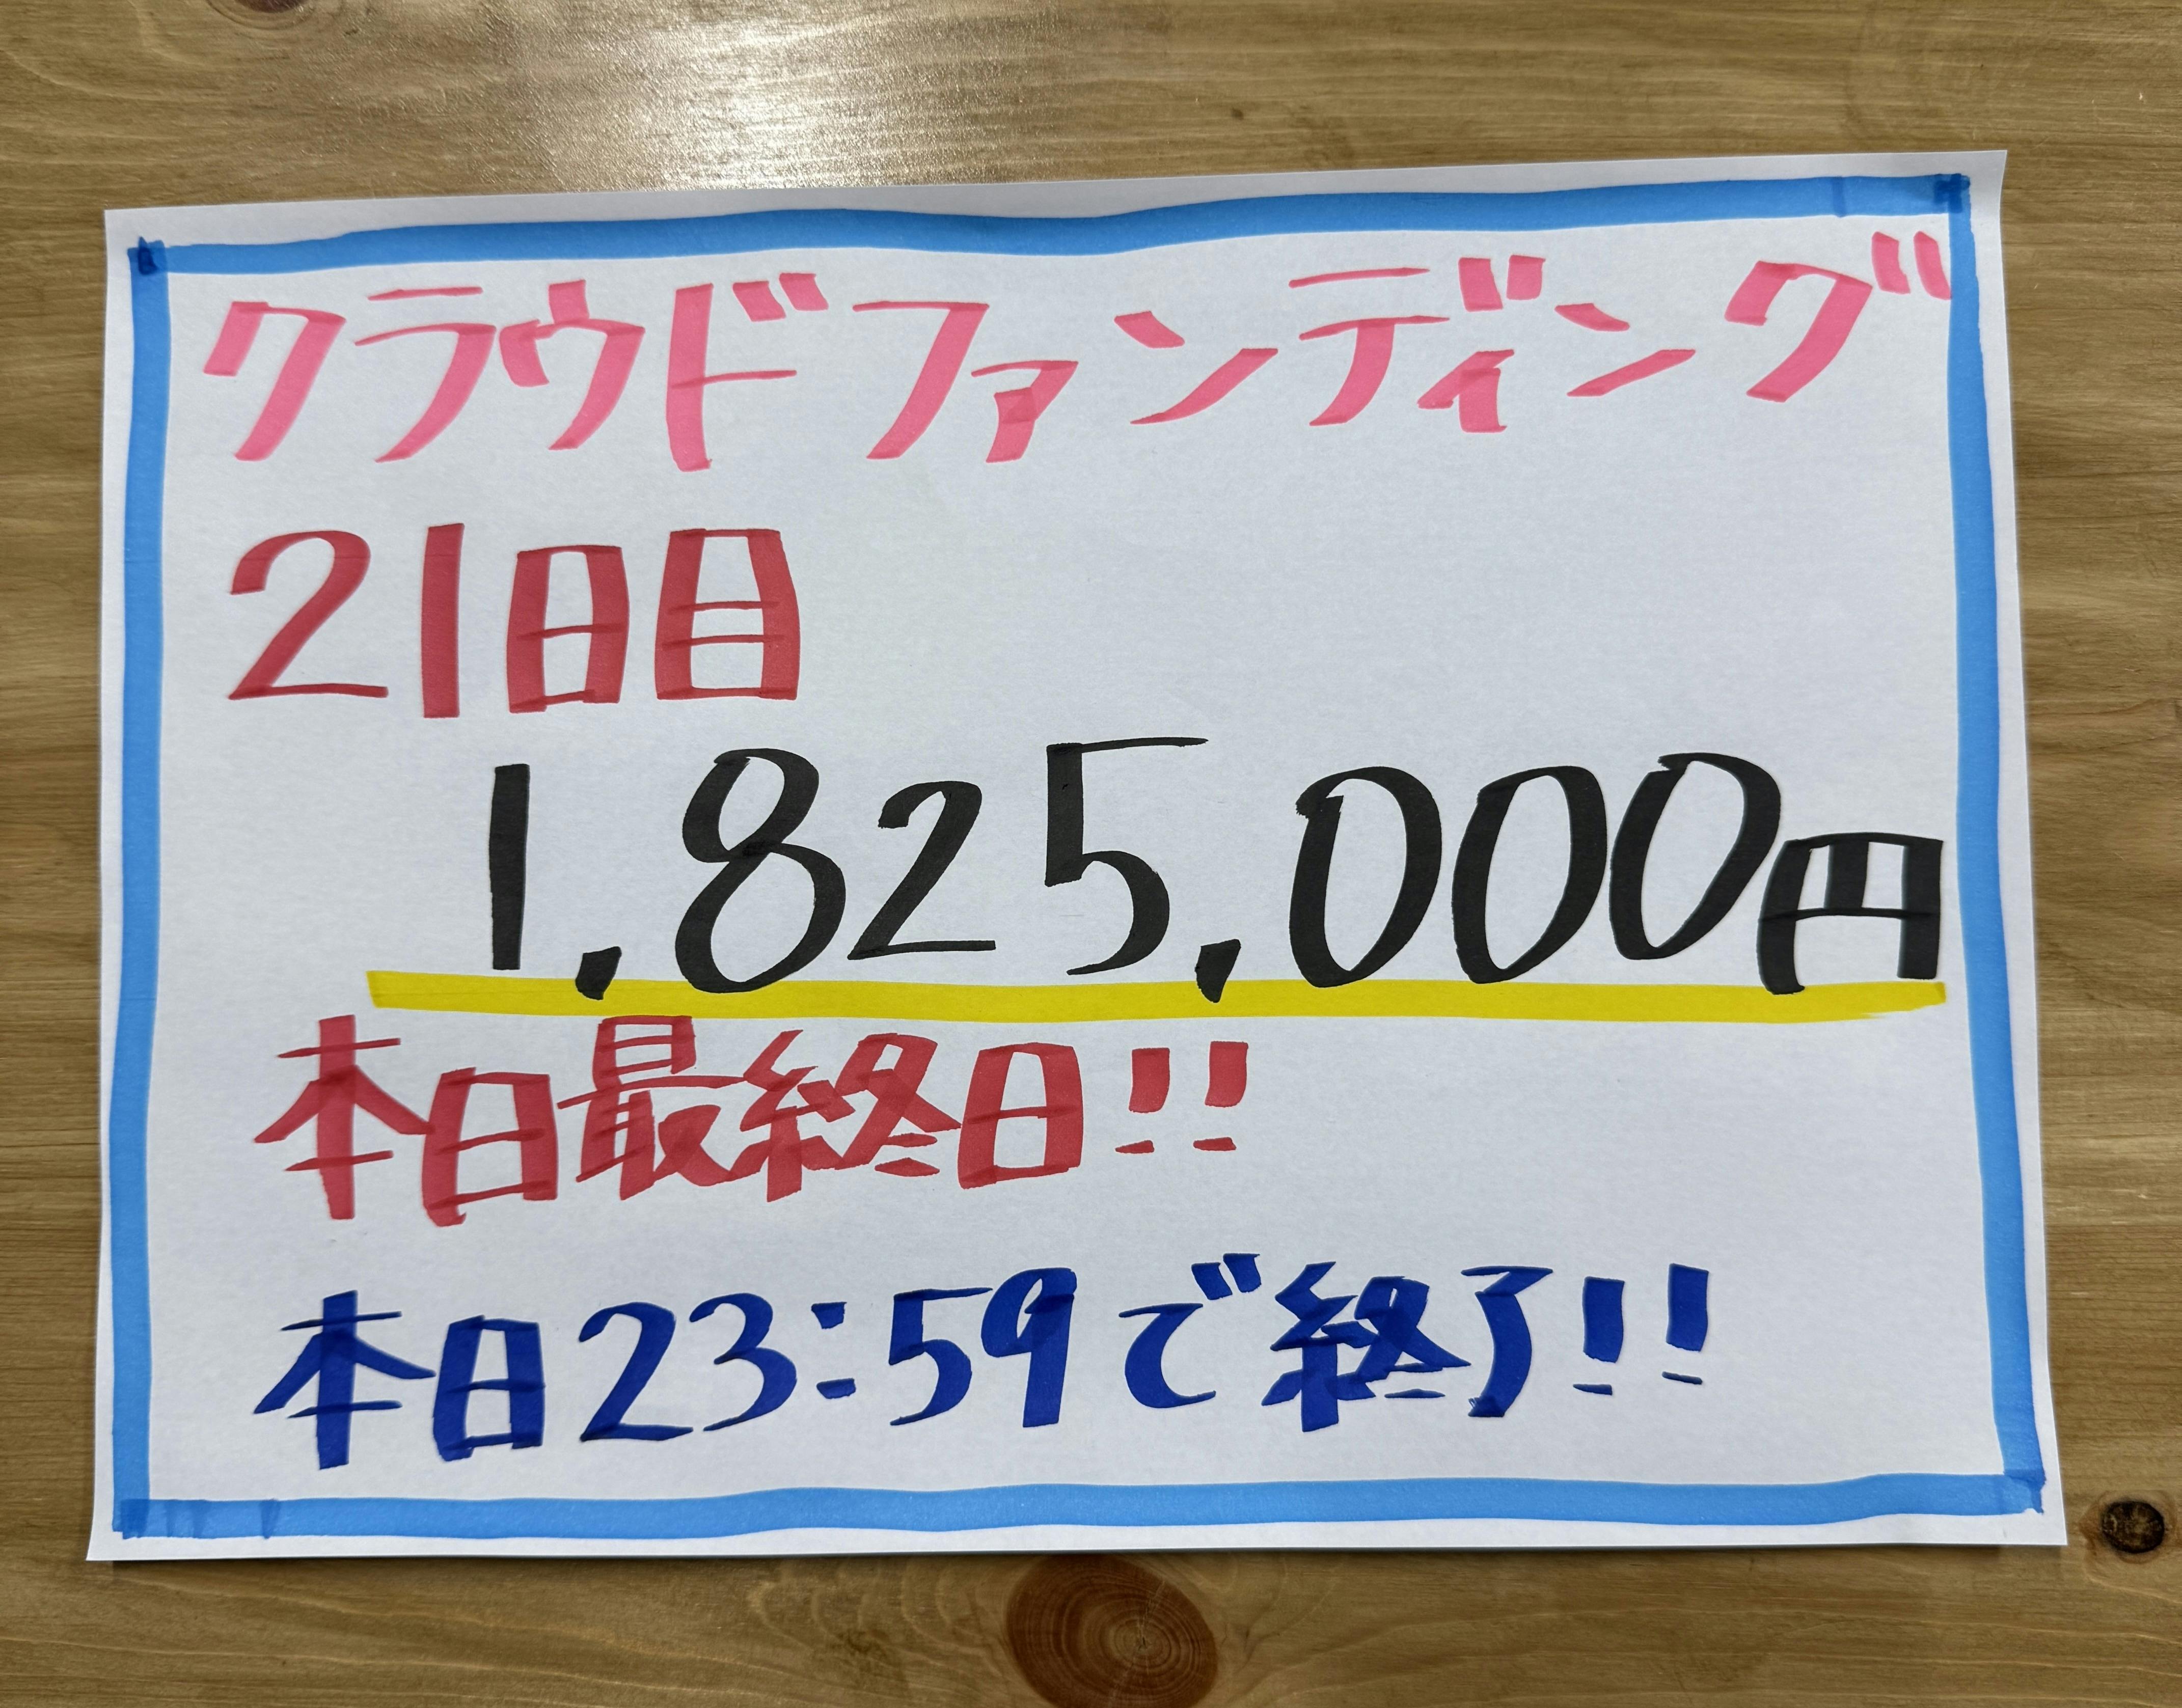 クラウドファンディング
21日目
1,825,000円
本日最終日!!
本日23:59で終了!!